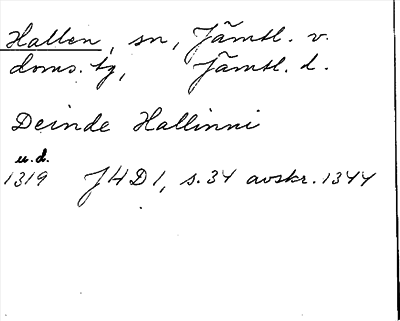 Hallen, sn, Jämtl. v.
doms. tg, Jämtl. l.
Deinde Hallinni
u.d.
1319 JHD1, s.34 avskr. 1344